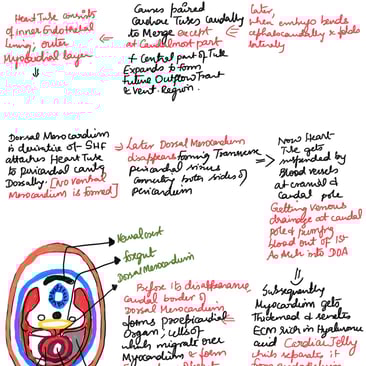 Heart Tube consists
of inner Endothelial
lining, outer
Myocardial layer
Causes paired
Cardiac Tubes caudally
to Merge except
at Caudalmost part
+ Central part of Tube
Expands to form
future Outflow Tract
& Vent. Region.
Later,
when embryo bends
cephalocaudally & folds
laterally
Dorsal Mesocardium
is derivative of SHF
attaches Heart Tube
to pericardial cavity
Dorsally. [No ventral
Mesocardium is formed]
Later Dorsal Mesocardium
disappears forming Transverse
pericardial sinus
connecting both sides of
pericardium
Now Heart
Tube gets
suspended by
Blood vessels
at cranial &
Caudal pole
Getting venous
drainage at caudal
pole & pumping
blood out of 1st
Arch into DOA
Subsequently
Myocardium gets
Thickened & secretes
ECM rich in Hyaluronic
acid Cardiac Jelly
which separates it
Neural crest
foregut
Dorsal Mesocardium
Before its disappearance
caudal border of
Dorsal Mesocardium
forms proepicardial
Organ, cells of
which migrate over
Myocardium & form